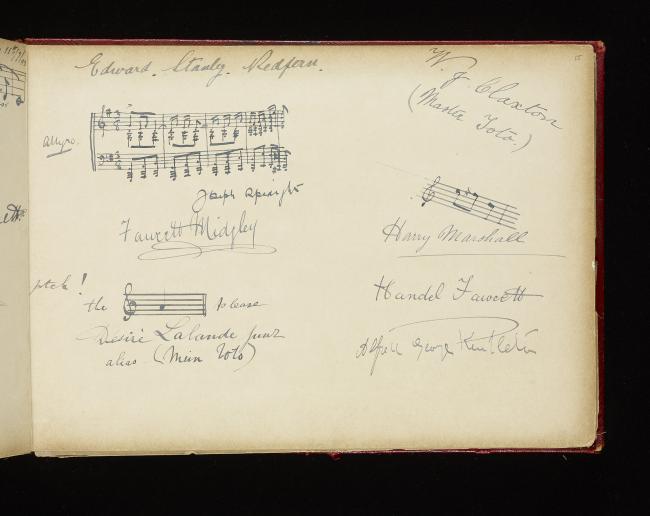 Edward. Stanley. Redfern.
Allegro.
Joseph Speaight
Fawcett Midgley
the
please
Desiré Lalande
alias (Mein Toto)
W. J. Claxton
(Master Toto.)
Harry Marshall
Handel Fawcett
Alfred George
15